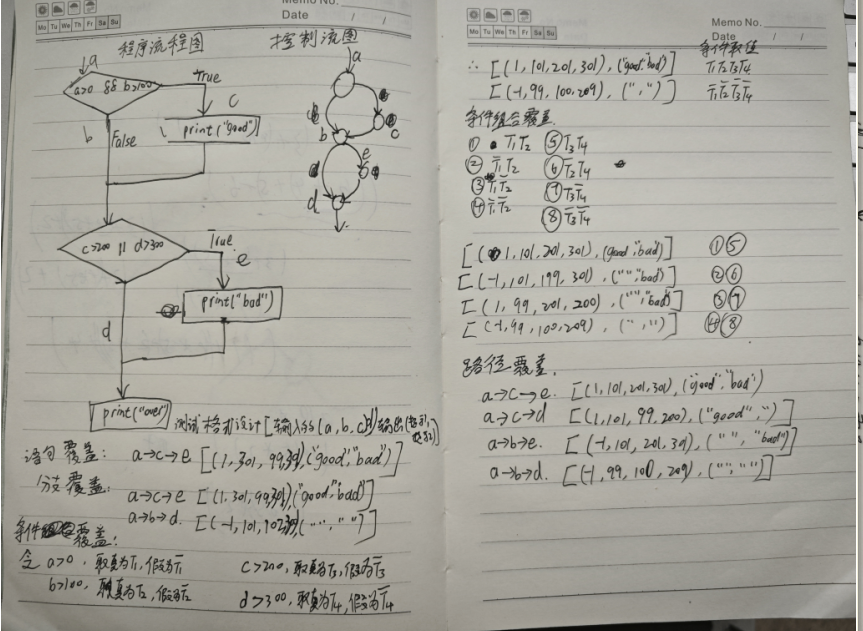 Memo No.
Date / /
Mo Tu We Th Fr Sa Su
程序流程图 控制流图
a
a
a>0 && b>100
True
c
b
False
print("good")
b
c
e
d
c>200 || d>300
True
e
print("bad")
d
print("over")
测试格式设计[输入的(a,b,c,d)输出
语句覆盖: a→c→e [(1,301,99,301),("good","bad")]
分支覆盖: a→c→e [(1,301,99,301),("good","bad")]
a→b→d. [(-1,101,102,
("","")]
条件覆盖:
令 a>0, 取真为T₁,假为T̄₁ c>200,取真为T₃,假为T̄₃
b>100, 取真为T₂,假为T̄₂ d>300,取真为T₄,假为T̄₄
Memo No.
Date / /
Mo Tu We Th Fr Sa Su
条件取值
∴ [(1,101,201,301),("good","bad")] T₁T₂T₃T₄
[(-1,99,100,209),("","")] T̄₁T̄₂T̄₃T̄₄
条件组合覆盖.
① T₁T₂ ⑤ T₃T₄
② T̄₁T₂ ⑥ T̄₃T₄
③ T₁T̄₂ ⑦ T₃T̄₄
④ T̄₁T̄₂ ⑧ T̄₃T̄₄
[(1,101,201,301),(good","bad")] ①⑤
[(-1,101,199,301),("","bad")] ②⑥
[(1,99,201,200),("","bad")] ③⑦
[(-1,99,100,209),("","")] ④⑧
路径覆盖.
a→c→e. [(1,101,201,301),("good","bad")
a→c→d [(1,101,99,200),("good","")]
a→b→e. [(-1,101,201,301),("","bad")]
a→b→d. [(-1,99,100,209),("","")]